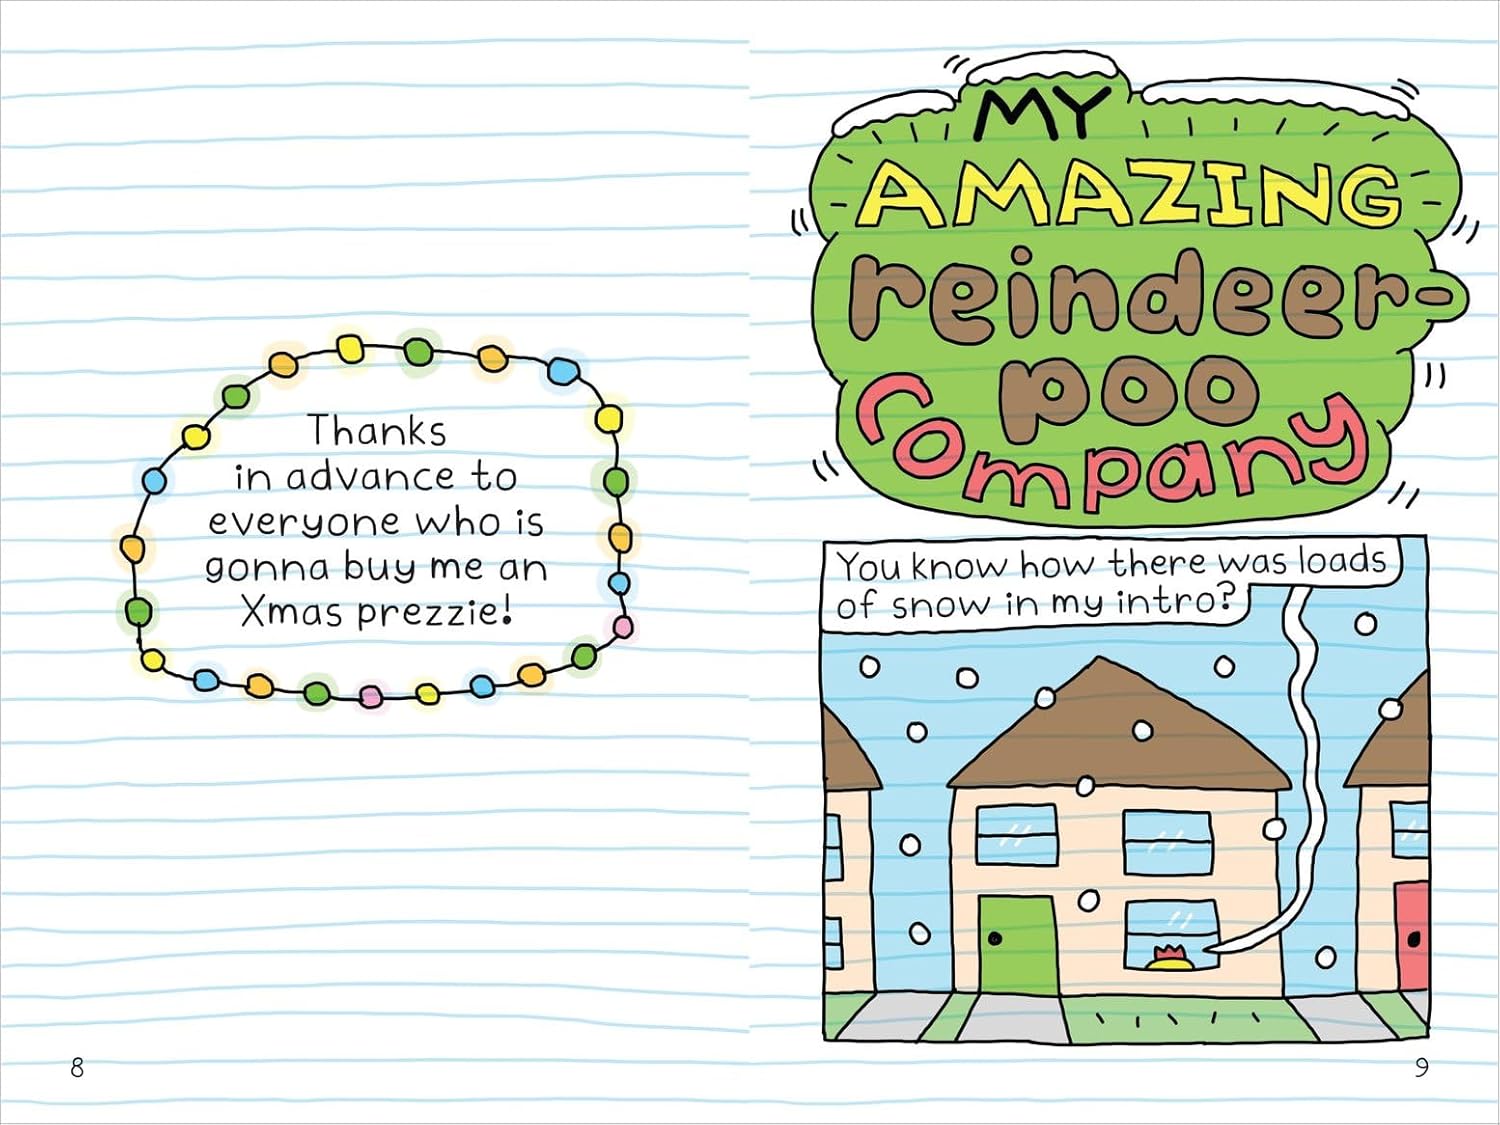 Thanks
in advance to
everyone who is
gonna buy me an
Xmas prezzie!
8
MY
AMAZING
reindeer-
poo
Company
You know how there was loads
of snow in my intro?
9